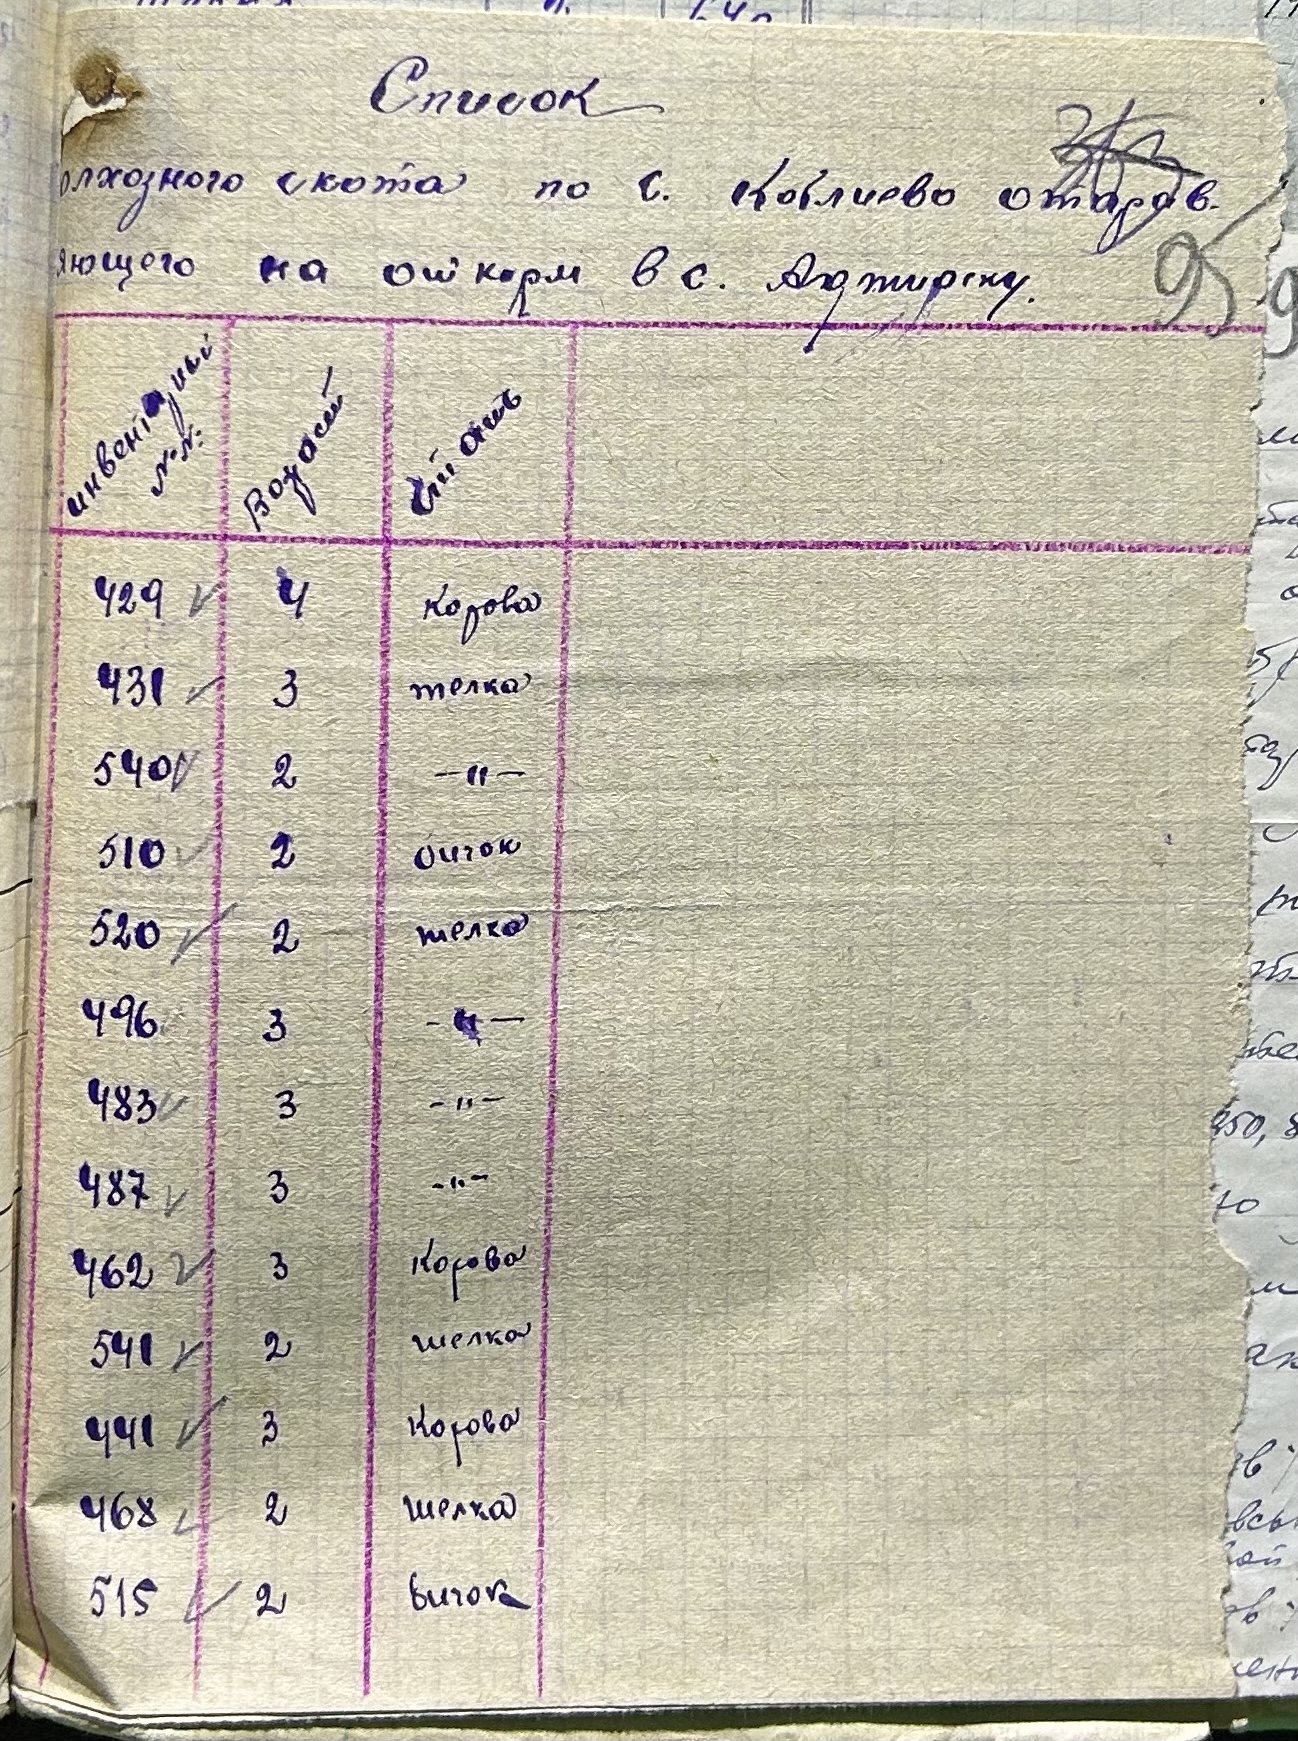 Список
олхозного скота по с. Коблиево отправ-
яющего на откорм в с. Аджиряску.
95
инвентарный №№: Возраст Стать
429 4 Корова
431 3 телка
540 2 —"—
510 2 бичок
520 2 телка
496 3 —"—
483 3 —"—
487 3 —"—
462 3 Корова
541 2 телка
441 3 Корова
468 2 телка
515 2 Бичок